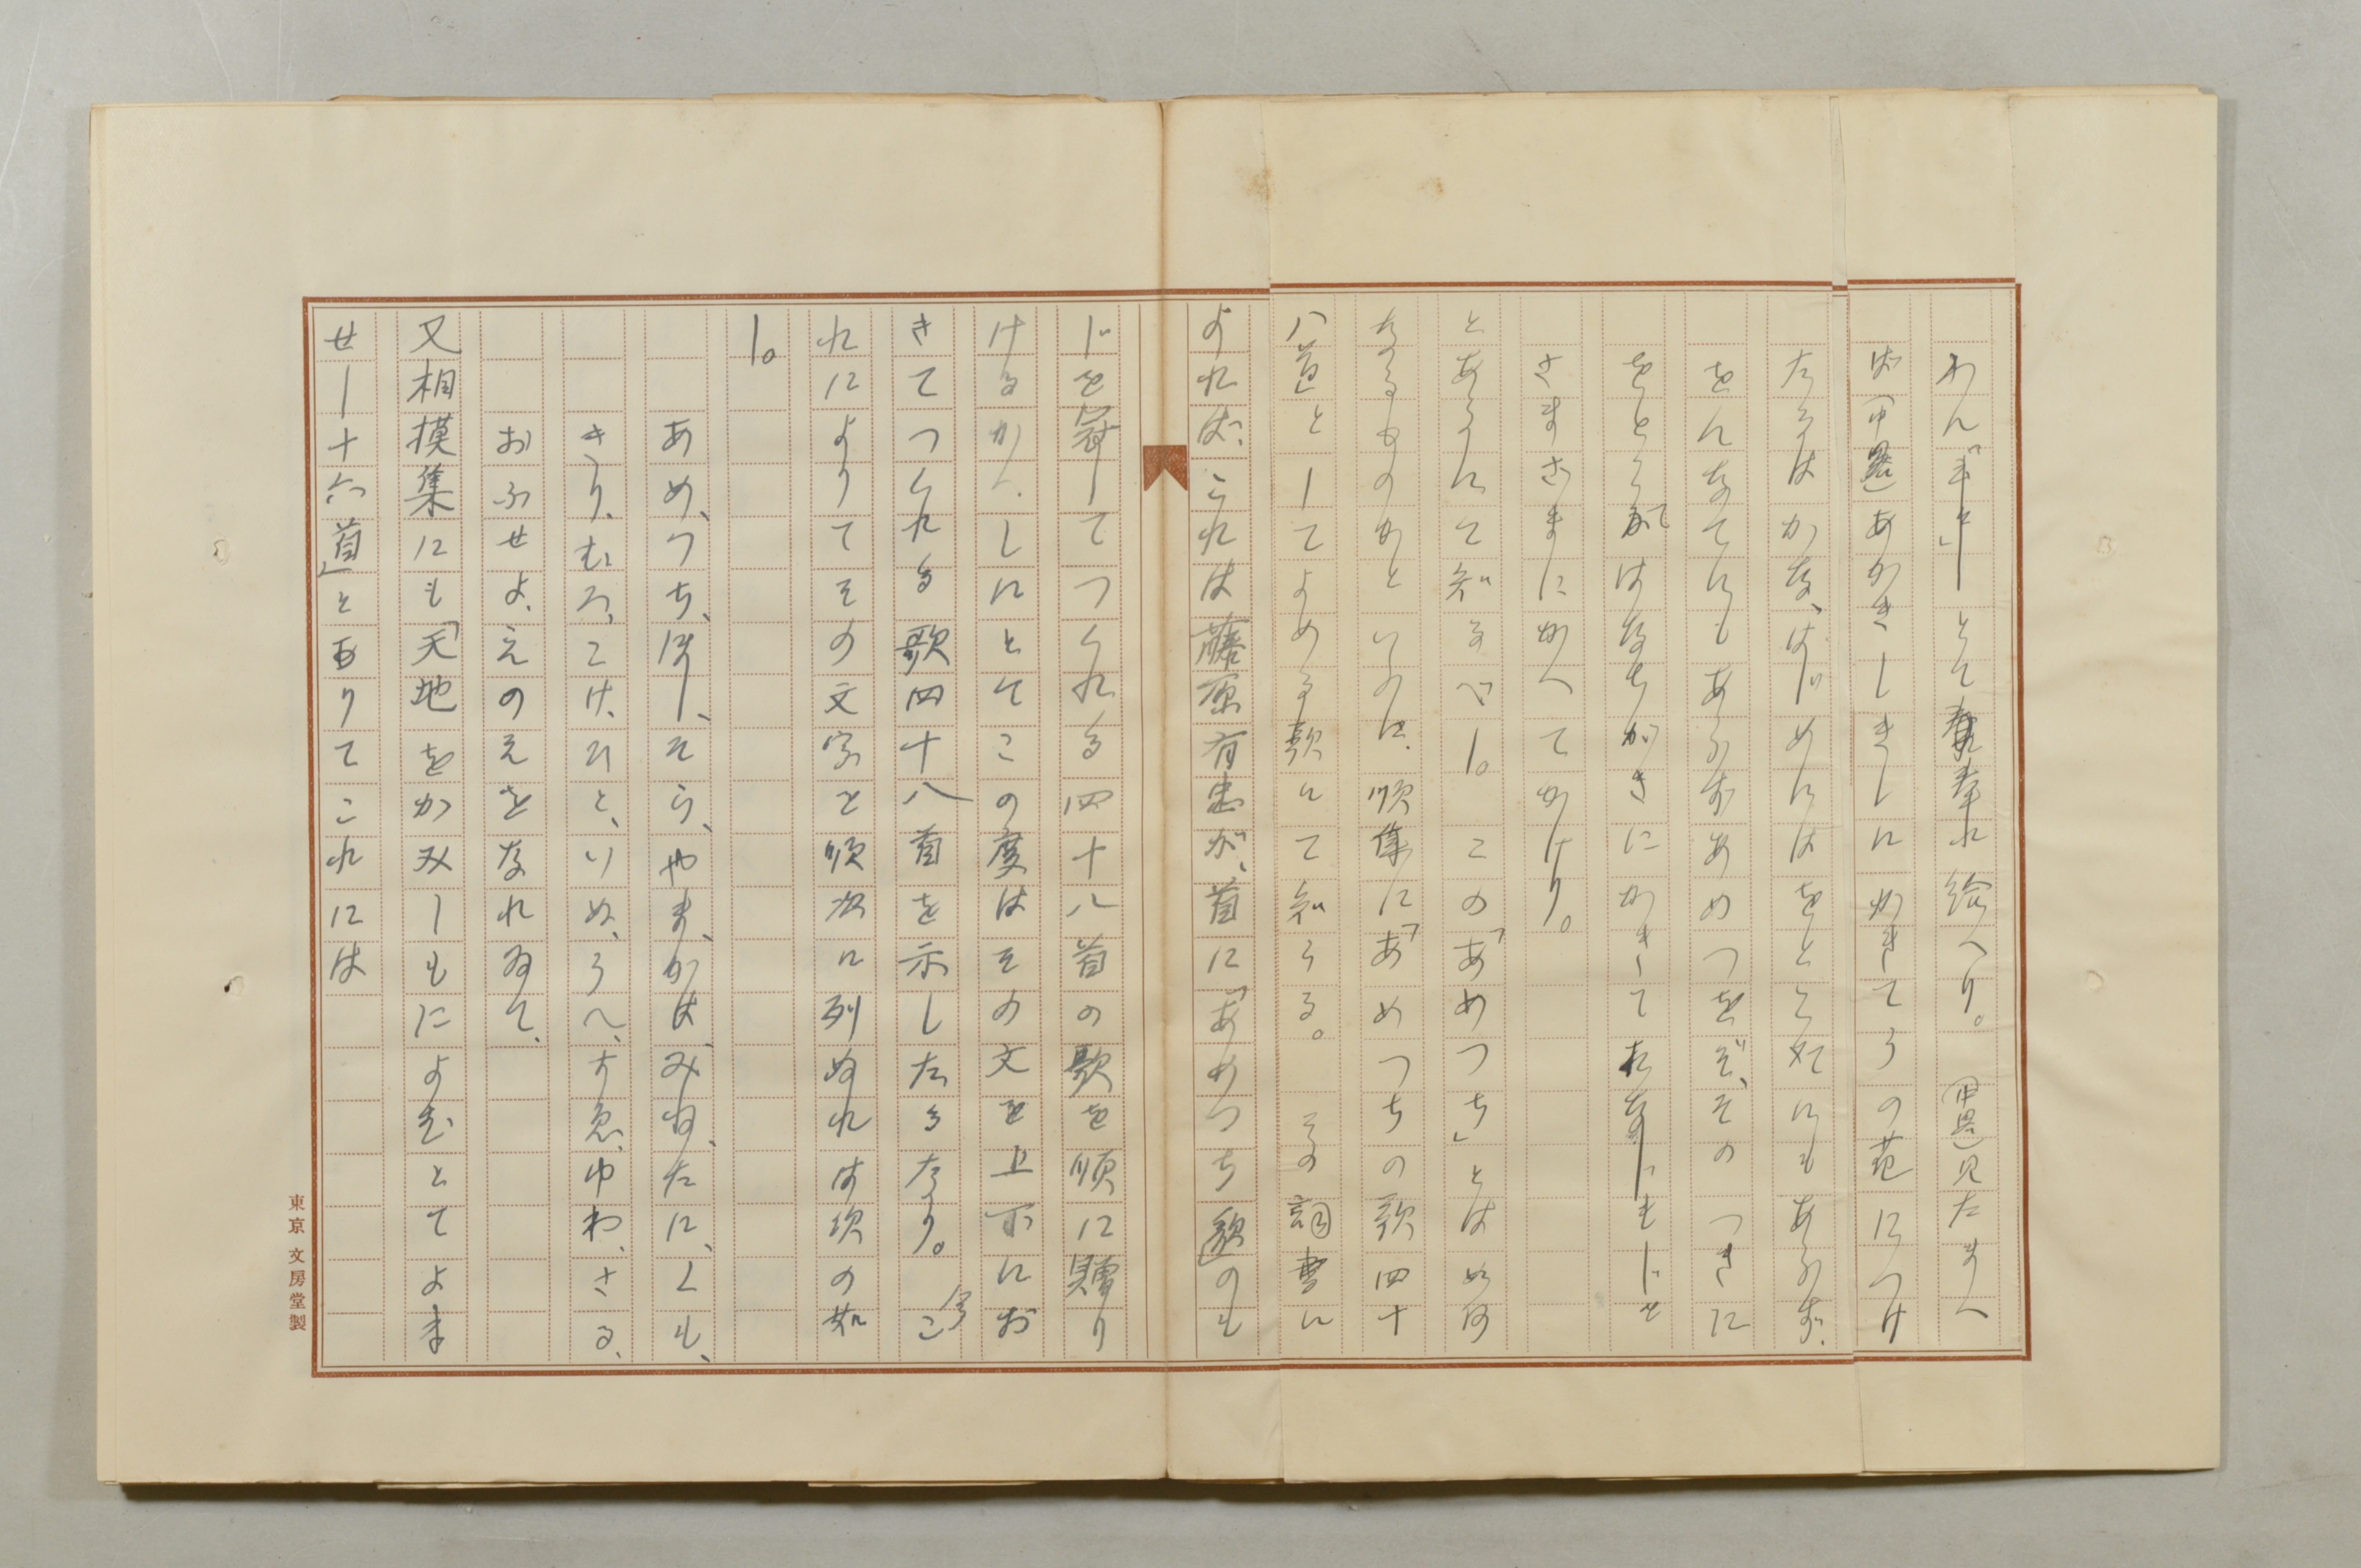 わん「まさ」とて奉れ給へり。(中畧)見たまへ
ば(中畧)あかきしきしにかきてうの花につけ
たるはかな、はじめにはをとこにもあらず、
をんなてにもあらずあめつちぞ、そのつぎに
をとこではなちがきにかきておなじもじを
さまざまにかへてかけり。
とあるにて知るべし。この「あめつち」とは如何
なるものかといふに、順集に「あめつちの歌四十
八首」としてよめる歌にて知らる。その詞書に
よれば、これは藤原有忠が、首に「あめつち歌」のも
じを冠してつくれる四十八首の歌を順に贈り
けるかへしにとてこの度はその文を上下にお
きてつくれる歌四十八首を示したるなり。今こ
れによりてその文字を順次に列ぬれは次の如
し。
あめ、つち、ほし、そら、やま、かは、みね、たに、くも、
きり、むろ、こけ、ひと、いぬ、うへ、すゑ、ゆわ、さる、
おふせよ、えのえをなれゐて、
又相摸集にも「天地をかみしもによむとてよま
せし十六首」とありてこれには
東京 文房堂製